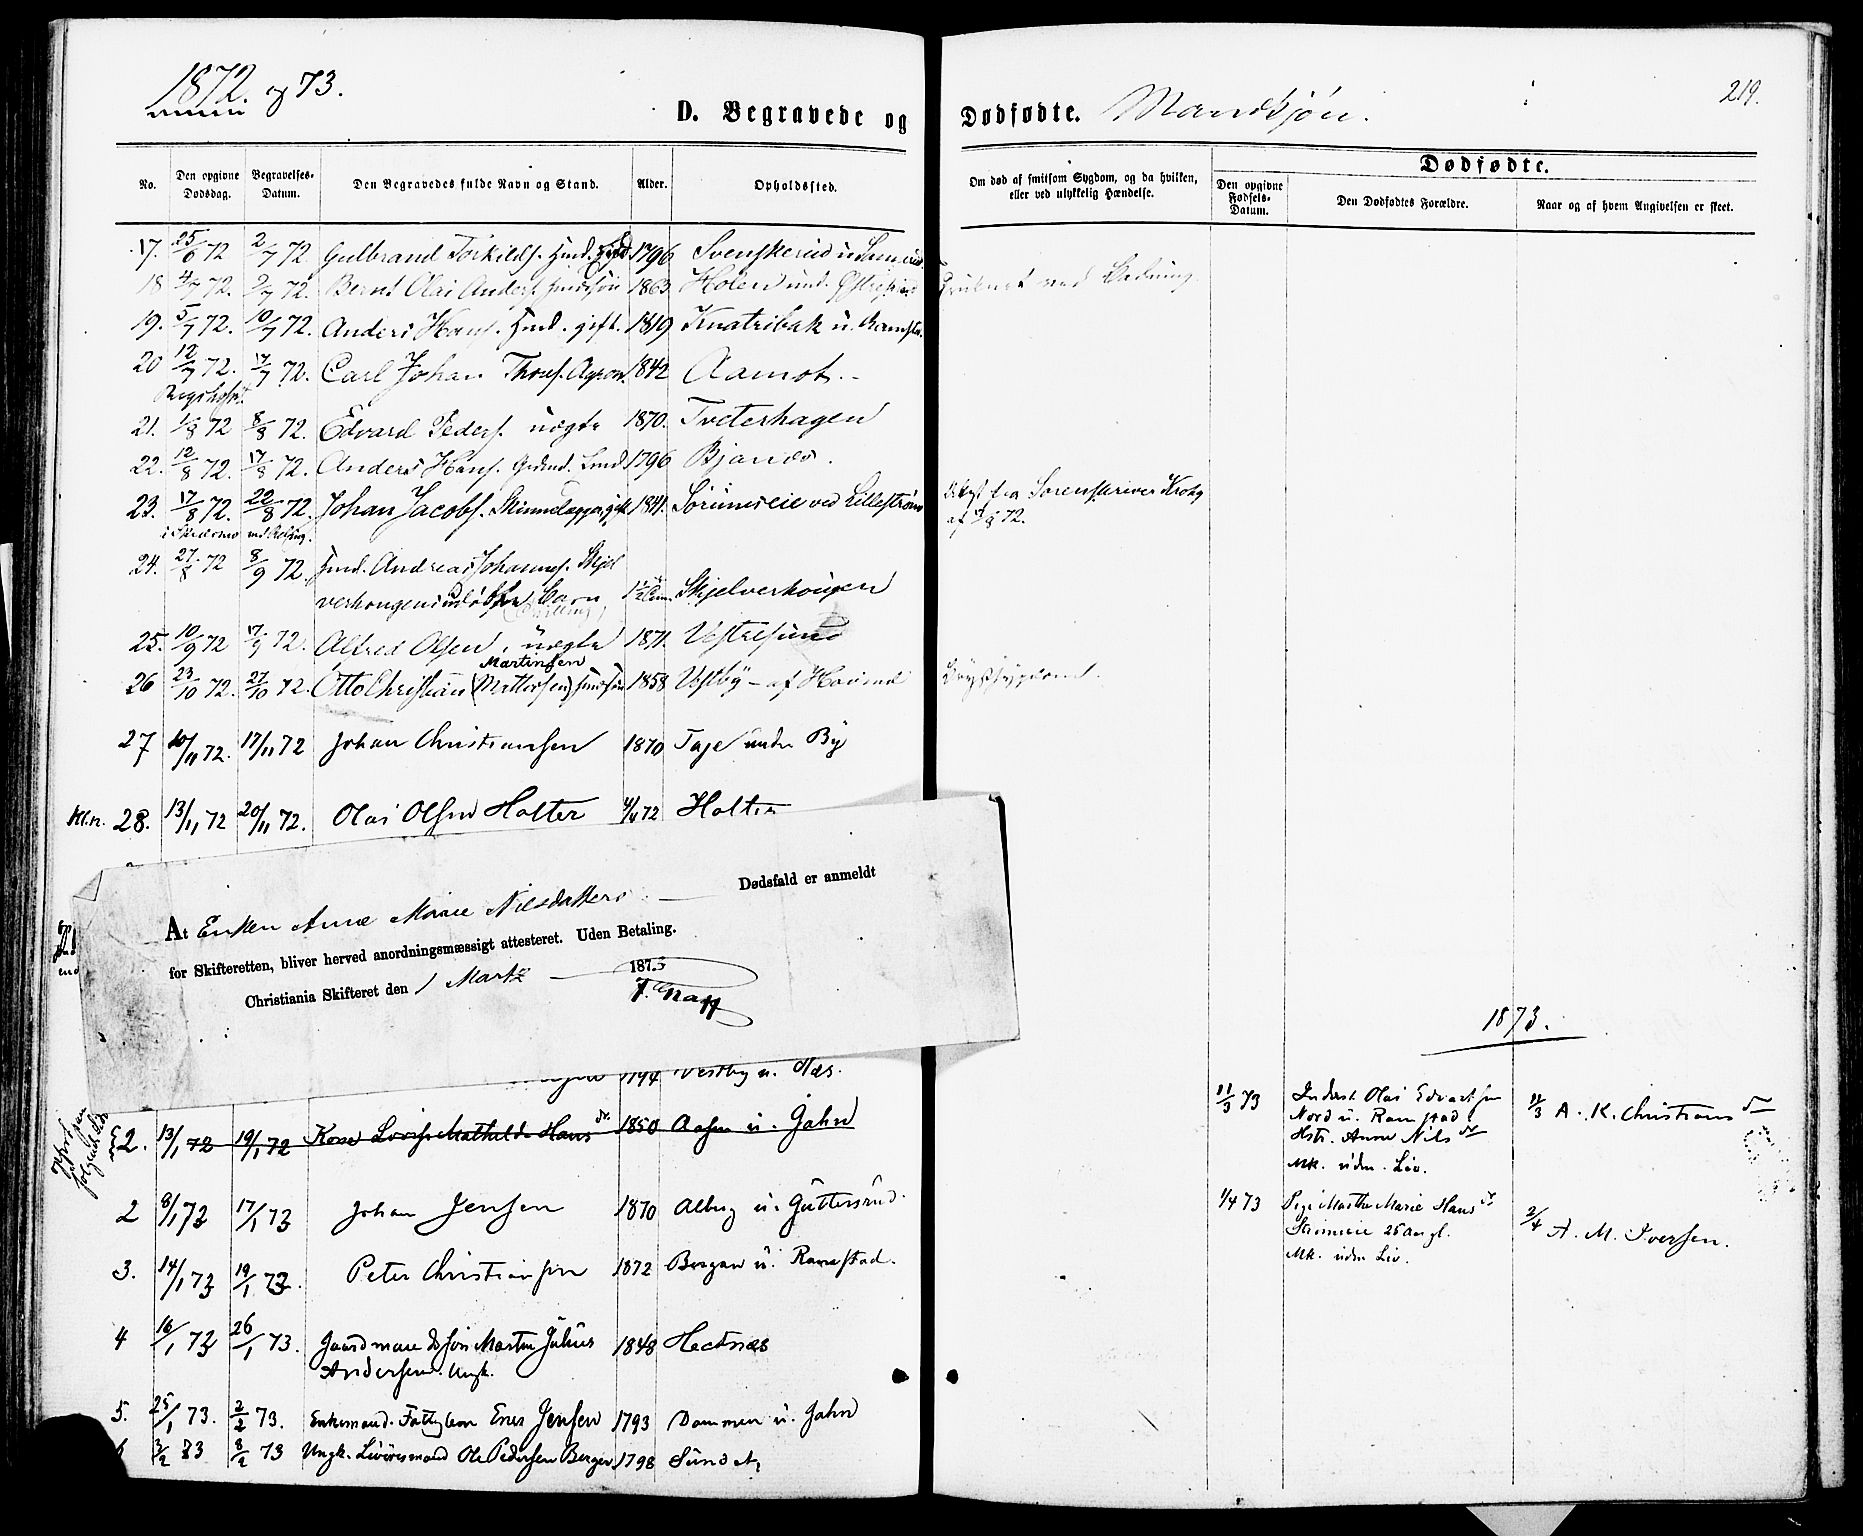 1872 og 73.
D. Begravede og Dødfødte. Mandkjøn. 219.
No.
Den opgivne Dødsdag.
Begravelses-Datum.
Den Begravedes fulde Navn og Stand.
Alder.
Opholdssted.
Om død af smitsom Sygdom, og da hvilken, eller ved ulykkelig Hændelse.
Dødfødte.
Den opgivne Fødsels-Datum.
Den Dødfødtes Forældre.
Naar og af hvem Angivelsen er skeet.
17. 25/6 72 2/7 72 Gulbrand Torkilds. 1796 Svenskerud
18 4/7 72. 9/7 72. Bernt Olai Anders. 1863 Holen und. Druknet ved Badning.
19. 5/7 72. 10/7 72. Anders Hans. Hmd. gift. 1819 Knatribak u.
20 12/7 72. 17/7 72. Carl Johan Thors. Agron. 1842 Aamot. -
Rigshosp.
21. 1/8 72 8/8 72. Edvard Peders. uægte 1870. Tveterhagen
22. 12/8 72. 17/8 72. Anders Hans. 1796 Bjanes.
23. 17/8 72. 22/8 72. Johan Jacobs. gift 1841. Sørumseie ved Lillestrøm fra Sorenskriver Krohg
af 17/8 72.
24. 27/8 72 8/9 72. Hmd. Andreas Johannes. Skjel
verhougens udøbte Barn 1/2 Skjelverhougen
25. 10/9 72 17/9 72. Alfred Olsen, uægte 1871. Vestresund
Martinsen
26 23/10 72. 27/10 72. Otto Christian 1858 Vestby - af
27 10/11 72. 17/11 72 Johan Christiansen 1870 Taje under By
Kl.n. 28. 13/11 72 20/11 72. Olai Olsen Holter 4/11 72 Holter
At Enken Anne Marie Nilsdatters Dødsfald er anmeldt
for Skifteretten, bliver herved anordningsmæssigt attesteret. Uden Betaling.
Christiania Skifteret den 1 Marts 1873
1873.
1794 Vestby u. Næs.
2. 13/1 72 19/1 72 Mathilde Hans dr. 1850 Aasen u. Jahn
2 8/1 73 17/1 73 Johan Jensen 1870 Alby u. Guttersrud.
3. 14/1 73 19/1 73. Peter Christiansen 1872 Bergan u. Ramstad.
4 16/1 73 26/1 73. Gaardmand Søn Martin Julius
Andersen. Ungk. 1848 Hectnæs
5. 25/1 73. 2/2 73. Enkemand. Fattiglem Enes Jensen 1793 Dammen u. Jahn
6 3/2 73 8/2 73 Ungk. Ole Pedersen Berger. 1798 Sundet,
11/3 73 Inderst Olai Edvardsen
Nord u. Ramstad
Hstr. Anne Nils dr
Mk. uden Liv.
11/3 A. K. Christians dr
1/4 73 Pige Marthe Marie Hans dr
25 Aar gl.
Mk. uden Liv.
2/4 A. M. Iversen.